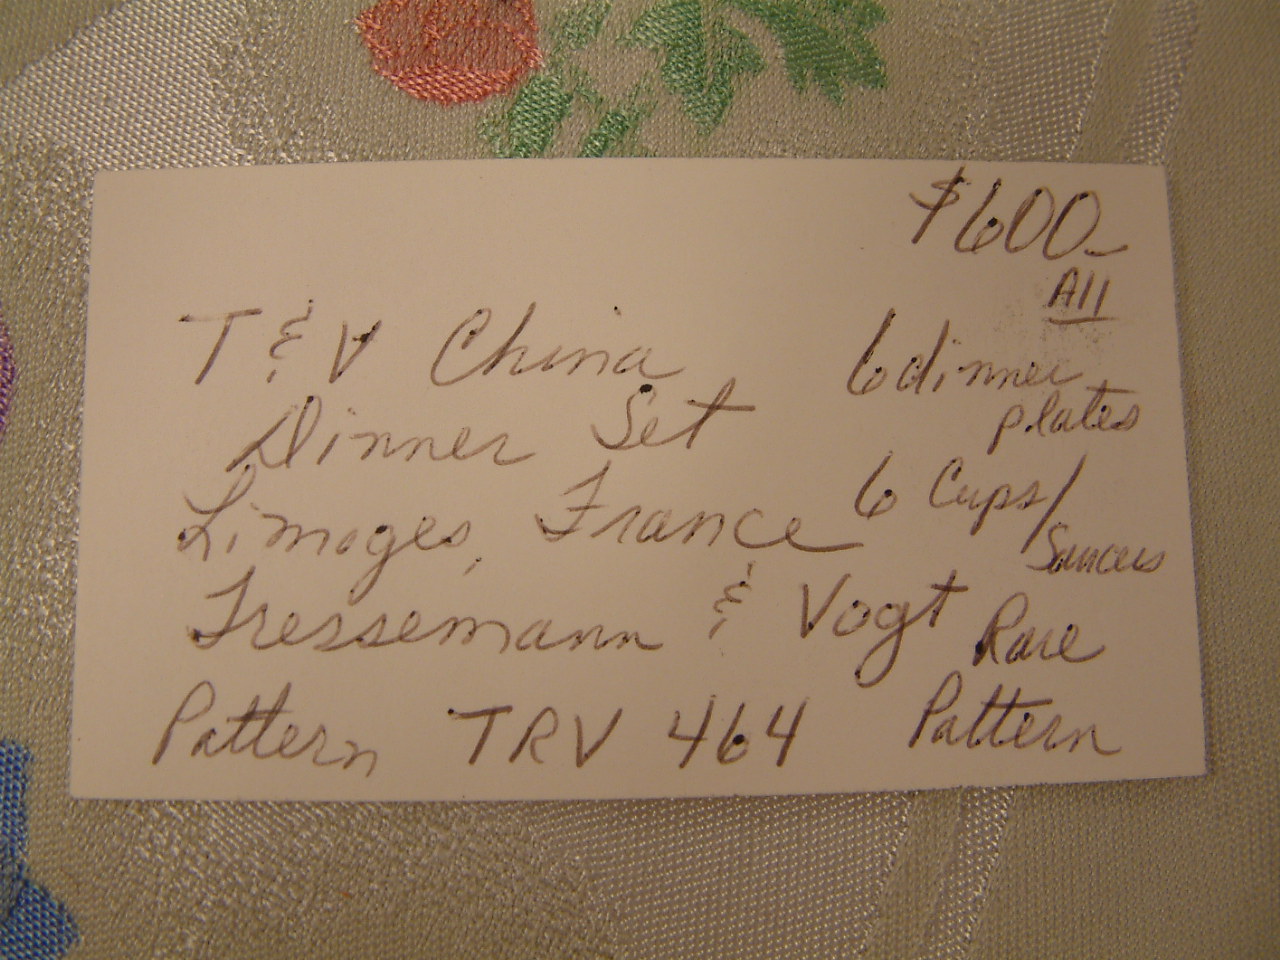 $600-
All
T & V China
Dinner Set
Limoges, France
Tressemann & Vogt
Pattern TRV 464
6 dinner
plates
6 Cups/
Saucers
Rare
Pattern